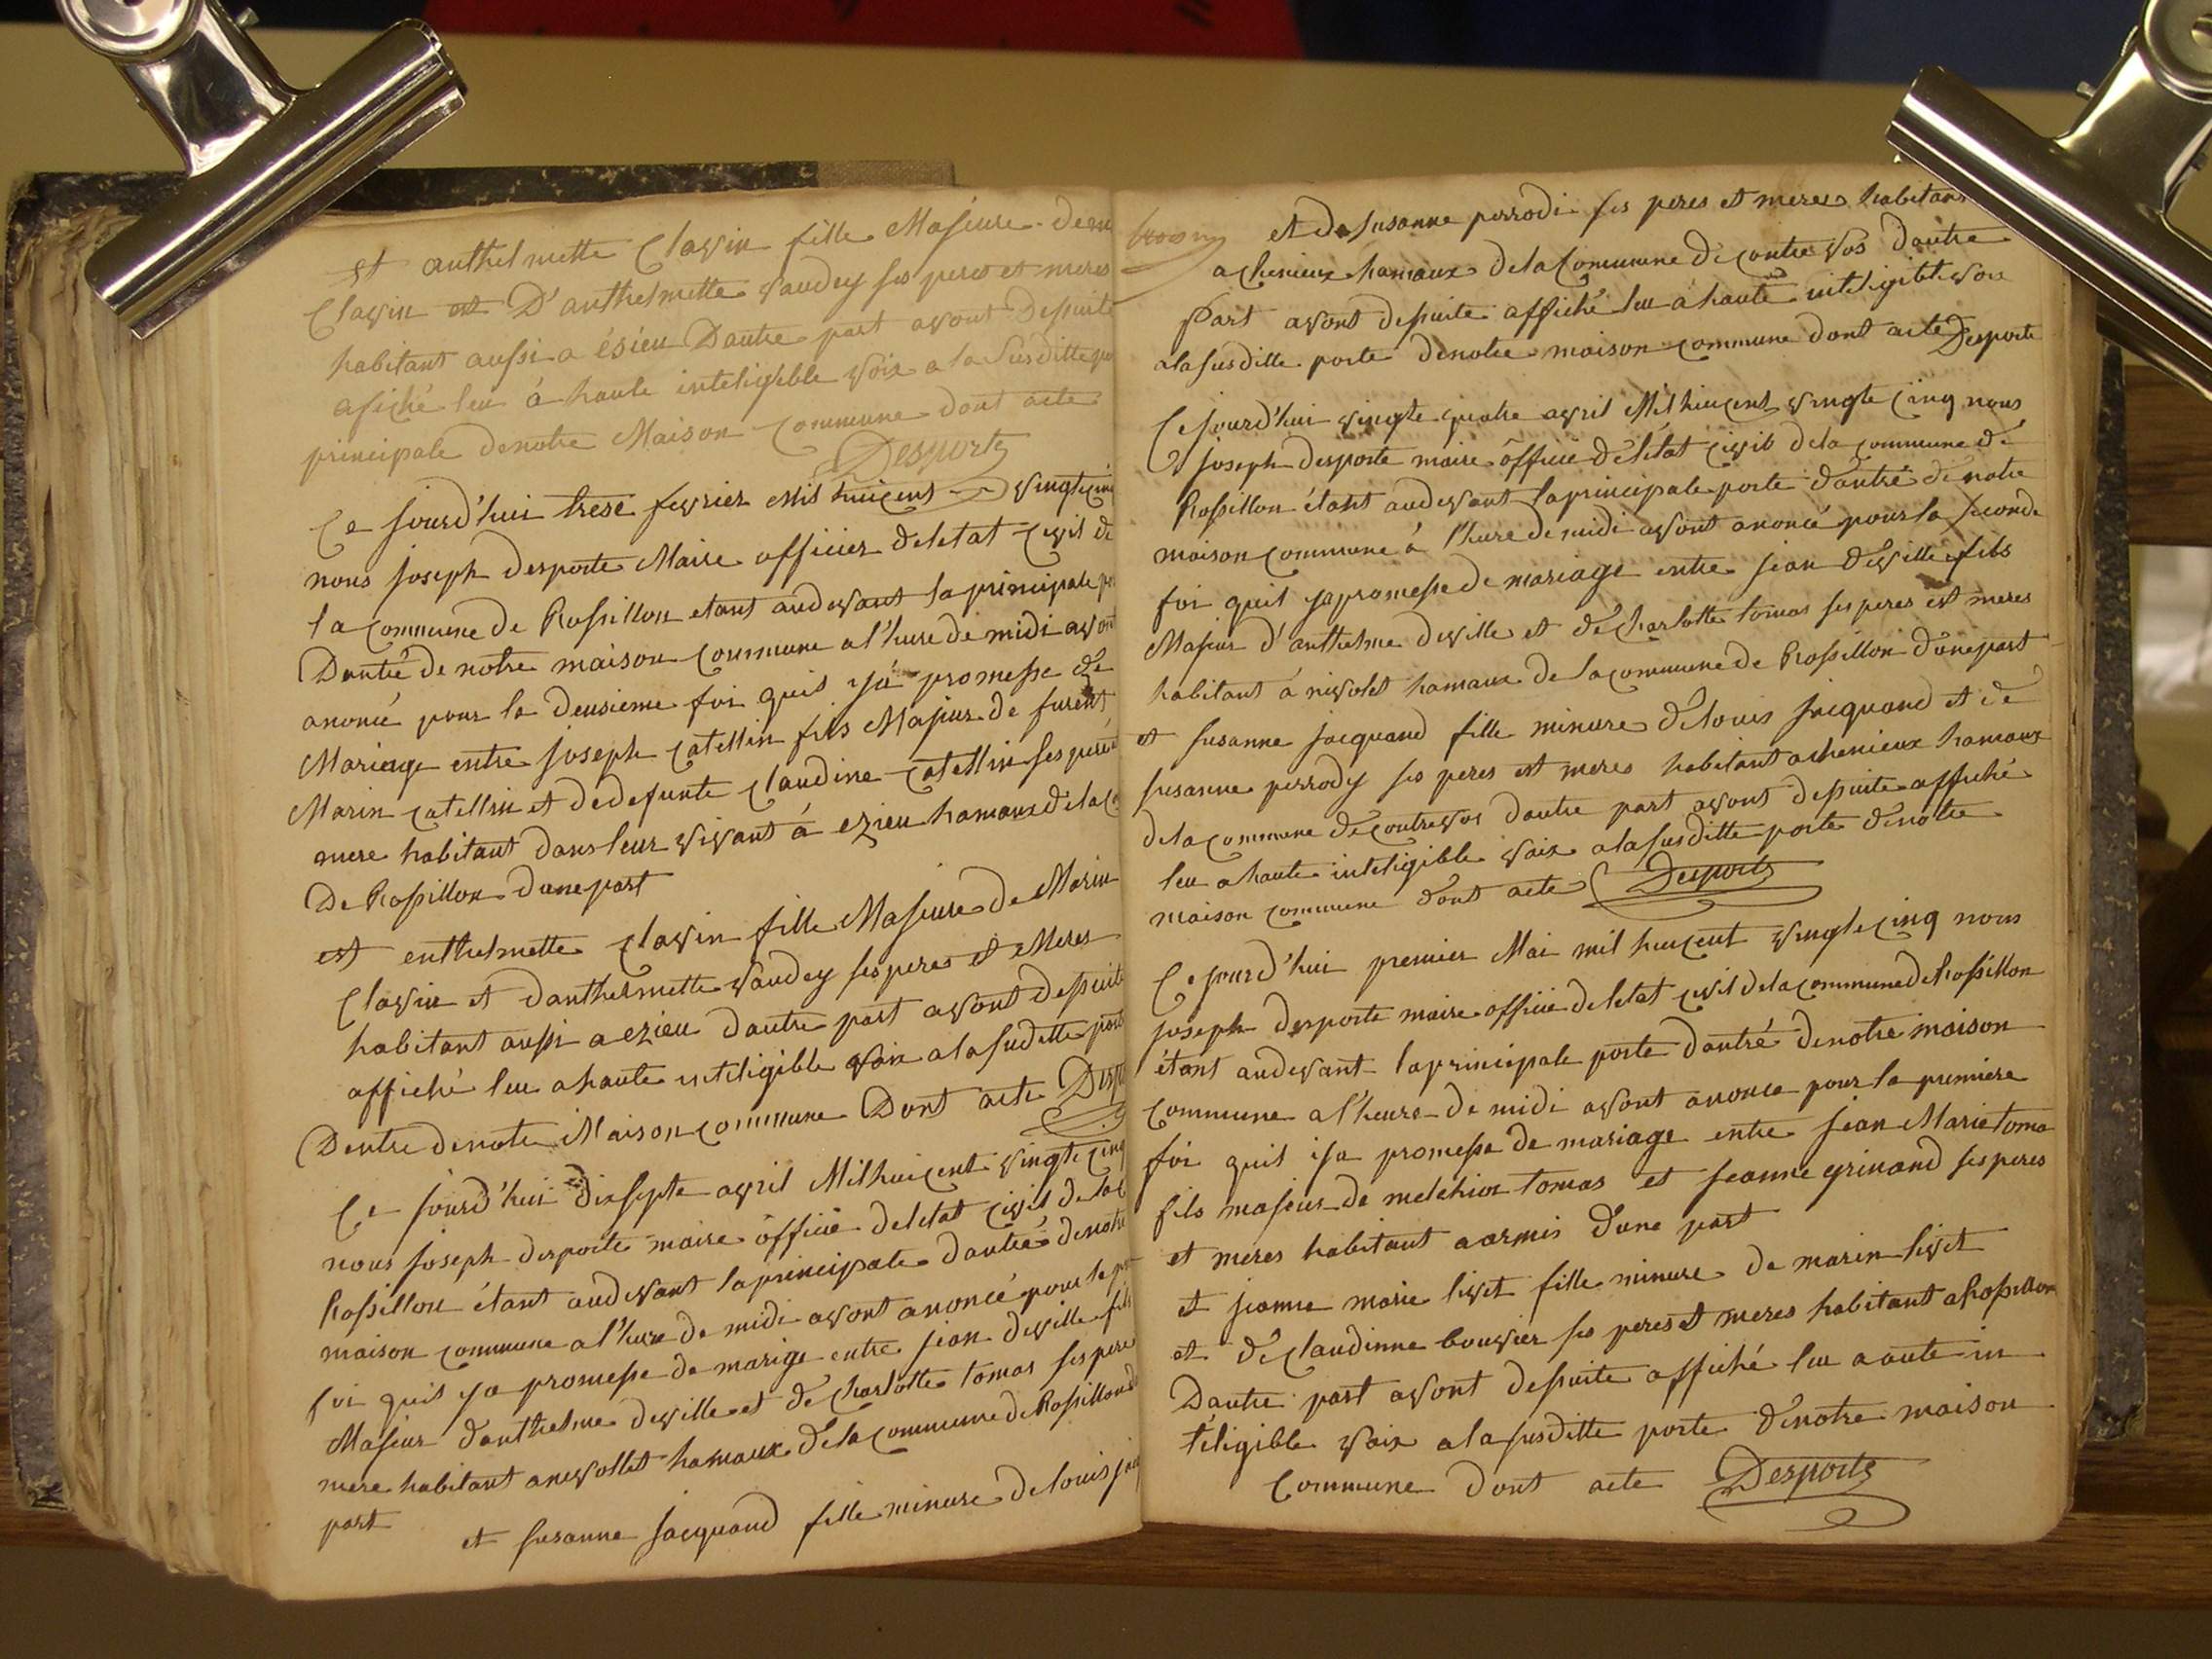 et anthelmette Clavin fille Majeure de
Clavin et D'anthelmette vaudey ses peres et meres
habitant aussi a ésieu Dautre part avont Desuite
afiché leu á haute inteligible voix a la Susditte
principale denotre Maison Commune dont acte
Desporte
Ce jourd'hui trese fevrier mil huicent vingtcinq
nous joseph Desporte Maire officier deletat civil de
la commune de Rossillon etant audevant la principale
Dantré de notre maison commune a l'hure de midi avont
anoncé pour la Deusieme foi quil y a promesse de
Mariage entre joseph Catellin fils Majeur de furent
Marin Catellin et dedefunte Claudine Catellin ses pere et
mere habitant dans leur vivant á ezieu hamaux de la
De Rossillon dune part
et enthelmette Clavin fille Majeure de Marin
Clavin et danthelmette vaudey ses peres et Meres
habitant aussi a ezieu dautre part avont desuite
affiché leu a haute inteligible voix a la suditte porte
Dentre denotre Maison commune Dont acte
Ce jourd'hui dixsepte avril Milhuicent vingtecinq
nous joseph desporte maire officié deletat civil de la
Rossillon étant audevant la principale dantré denotre
maison commune a l'hure de midi avont anoncé pour la
foi quil y a promesse de marige entre jean deville fils
Majeur danthelme deville et de Charlotte tomas ses pere
mere habitant anevollet hamaux de la commune de Rossillon
part
et susanne jacquand fille minure de louis
et De susanne perrodi ses peres et meres habitant
a chenieux hamaux de la Commune de contrevos dautre
Part avont desuite affiché leu á haute inteligible voix
a la susditte porte denotre maison commune dont acte Desporte
Cejourd'hui vingte quatre avril Mil huicent vingte cinq nous
joseph desporte maire officié de létat civil de la commune de
Rossillon étant audevant la principale porte dantré de notre
maison commune á l'hure de midi avont anoncé pour la seconde
foi quil ya promesse de mariage entre jean deville fils
Majeur d'anthelme deville et de Charlotte tomas ses peres et meres
habitant á nivolet hamaux de la commune de Rossillon dune part
et susanne jacquand fille minure de louis jacquand et de
susanne perrody ses peres et meres habitant a chenieux hamaux
de la commune de contrevos dautre part avont desuite affiché
leu a haute inteligible voix a la susditte porte denotre
maison commune dont acte Desporte
Cejourd'hui premier Mai mil huicent vingtecinq nous
joseph desporte maire officié de letat civil de la commune de Rossillon
étant audevant la principale porte dantré denotre maison
commune a l'heure de midi avont anonce pour la premiere
foi quil iya promesse de mariage entre jean Marie toma
fils majeur de melchior tomas et jeanne grinand ses peres
et meres habitant a armis dune part
et jeanne marie livet fille minure de marin livet
et de Claudinne bouvier ses peres et meres habitant a Rossillon
Dautre part avont desuite affiché leu a aute in
teligible voix a la susditte porte denotre maison
Commune dont acte Desporte